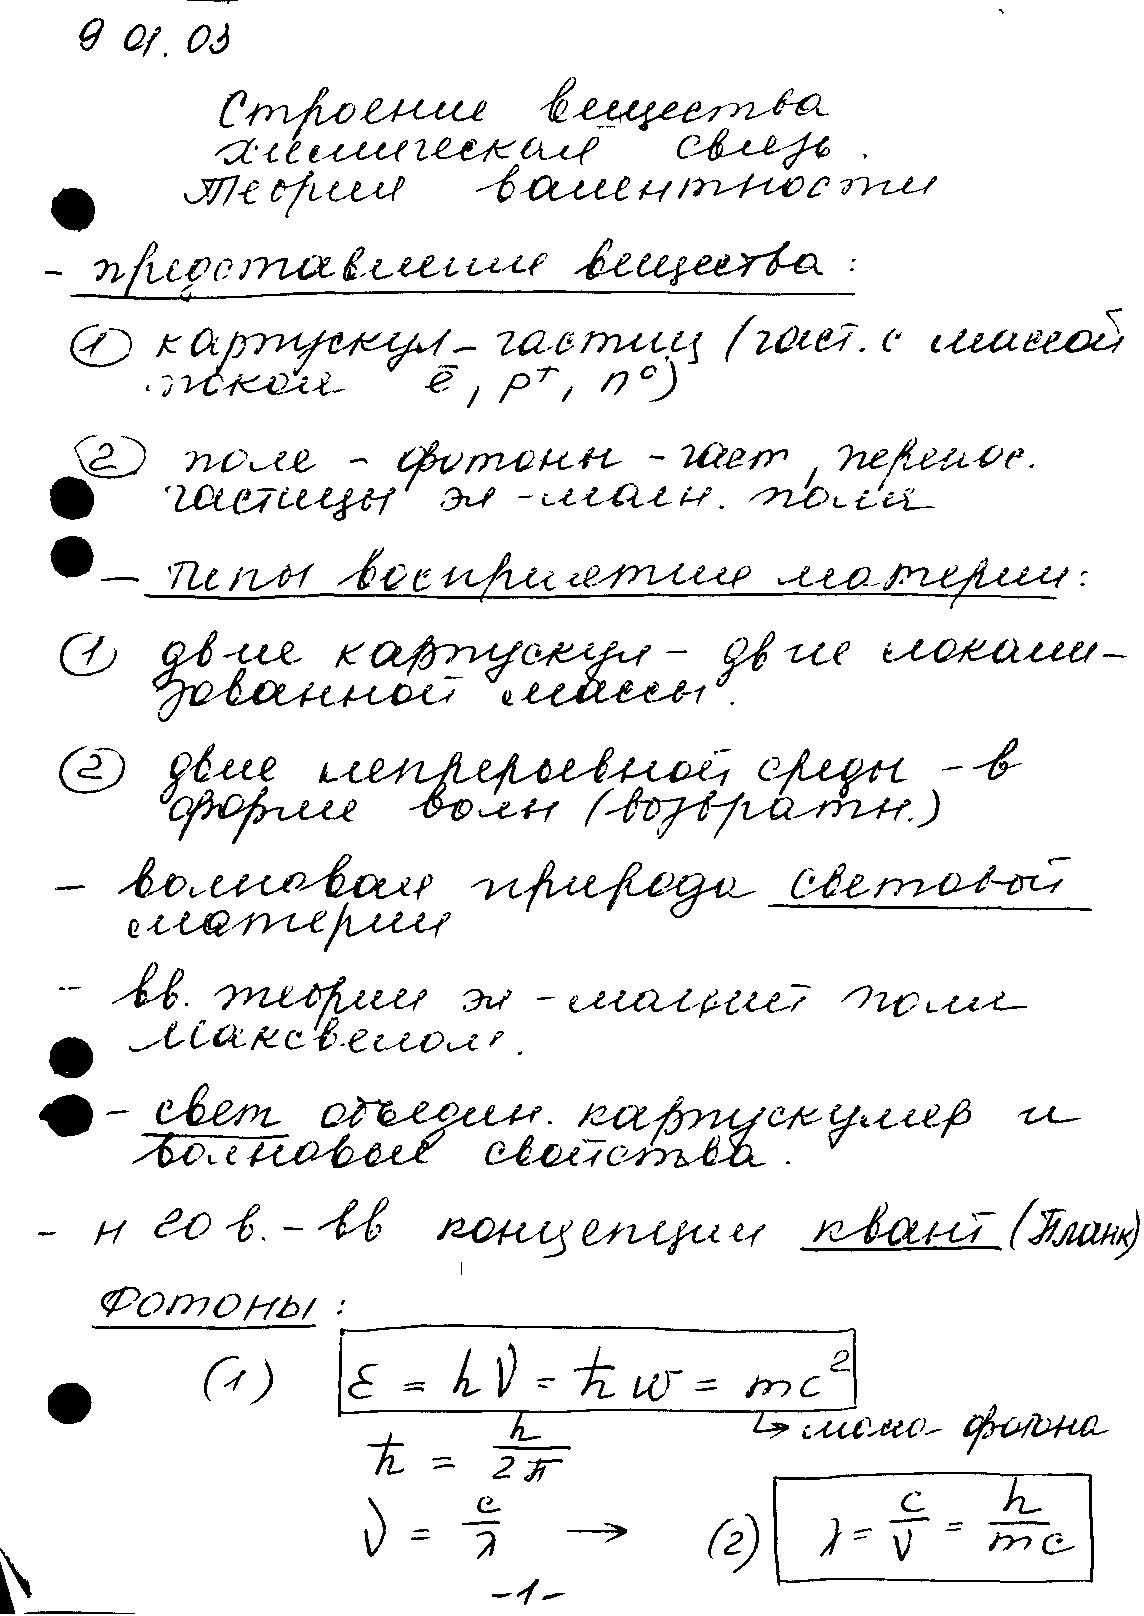 9 01.03
Строение вещества
химическая связь.
теория валентности
- представление вещества:
① карпускул - частиц (част. с массой
покоя ē, p⁺, n⁰)
② поле - фотоны - част, перенос.
частицы эл-магн. поля
- типы восприятия материи:
① двие карпускул - двие локали-
зованной массы.
② двие непрерывной среды - в
форме волн (возвратн.)
- волновая природа световой
материи
- вв. теории эл-магнит поля
Максвелом.
- свет объедин. карпускуляр и
волновые свойства.
- н 20 в. - вв концепции квант (Планк)
Фотоны:
(1) ε = hν = ħw = mc²
↳ масса фотона
ħ = h/2π
ν = c/λ → (2) λ = c/ν = h/mc
-1-